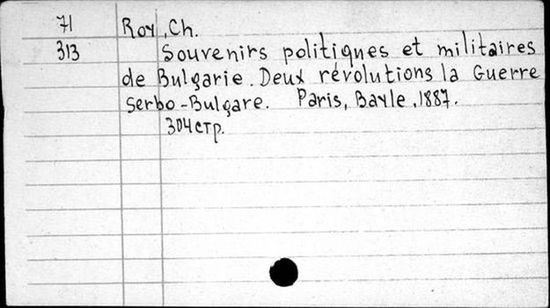 71 Roy, Ch.
313 Souvenirs politiques et militaires
de Bulgarie. Deux révolutions la Guerre
Serbo-Bulgare. Paris, Bayle, 1887.
304 стр.